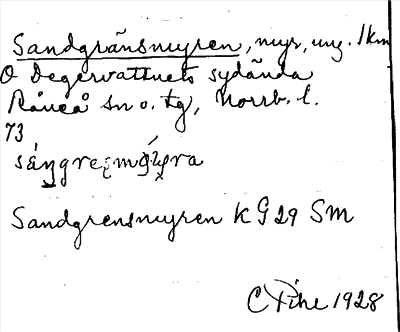 Sandgränsmyren, myr, ung. 1km
O Degervattnets sydända
Råneå sn o. tg, Norrb. l.
73
Sandgrensmyren K G 29 SM
C Pihl 1928